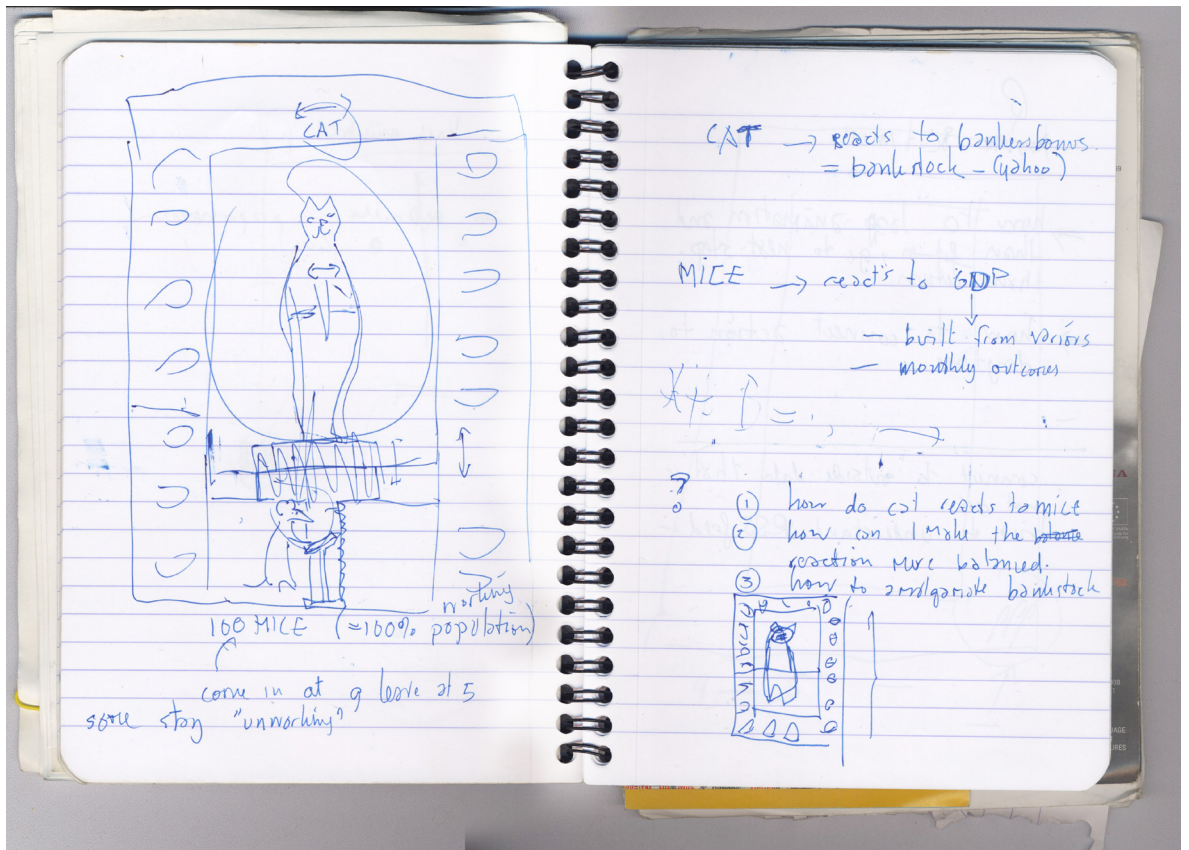 CAT
working
100 MICE (=100% population)
come in at 9 leave at 5
some stay "unworking"
CAT → reacts to bankersbonus.
= bankstock – (yahoo)
MICE → reacts to GDP
– built from varions
– monthly outcomes
?
① how do cat reacts to mice
② how can I make the balance
reaction more balanced.
③ how to amalgamate bankstock